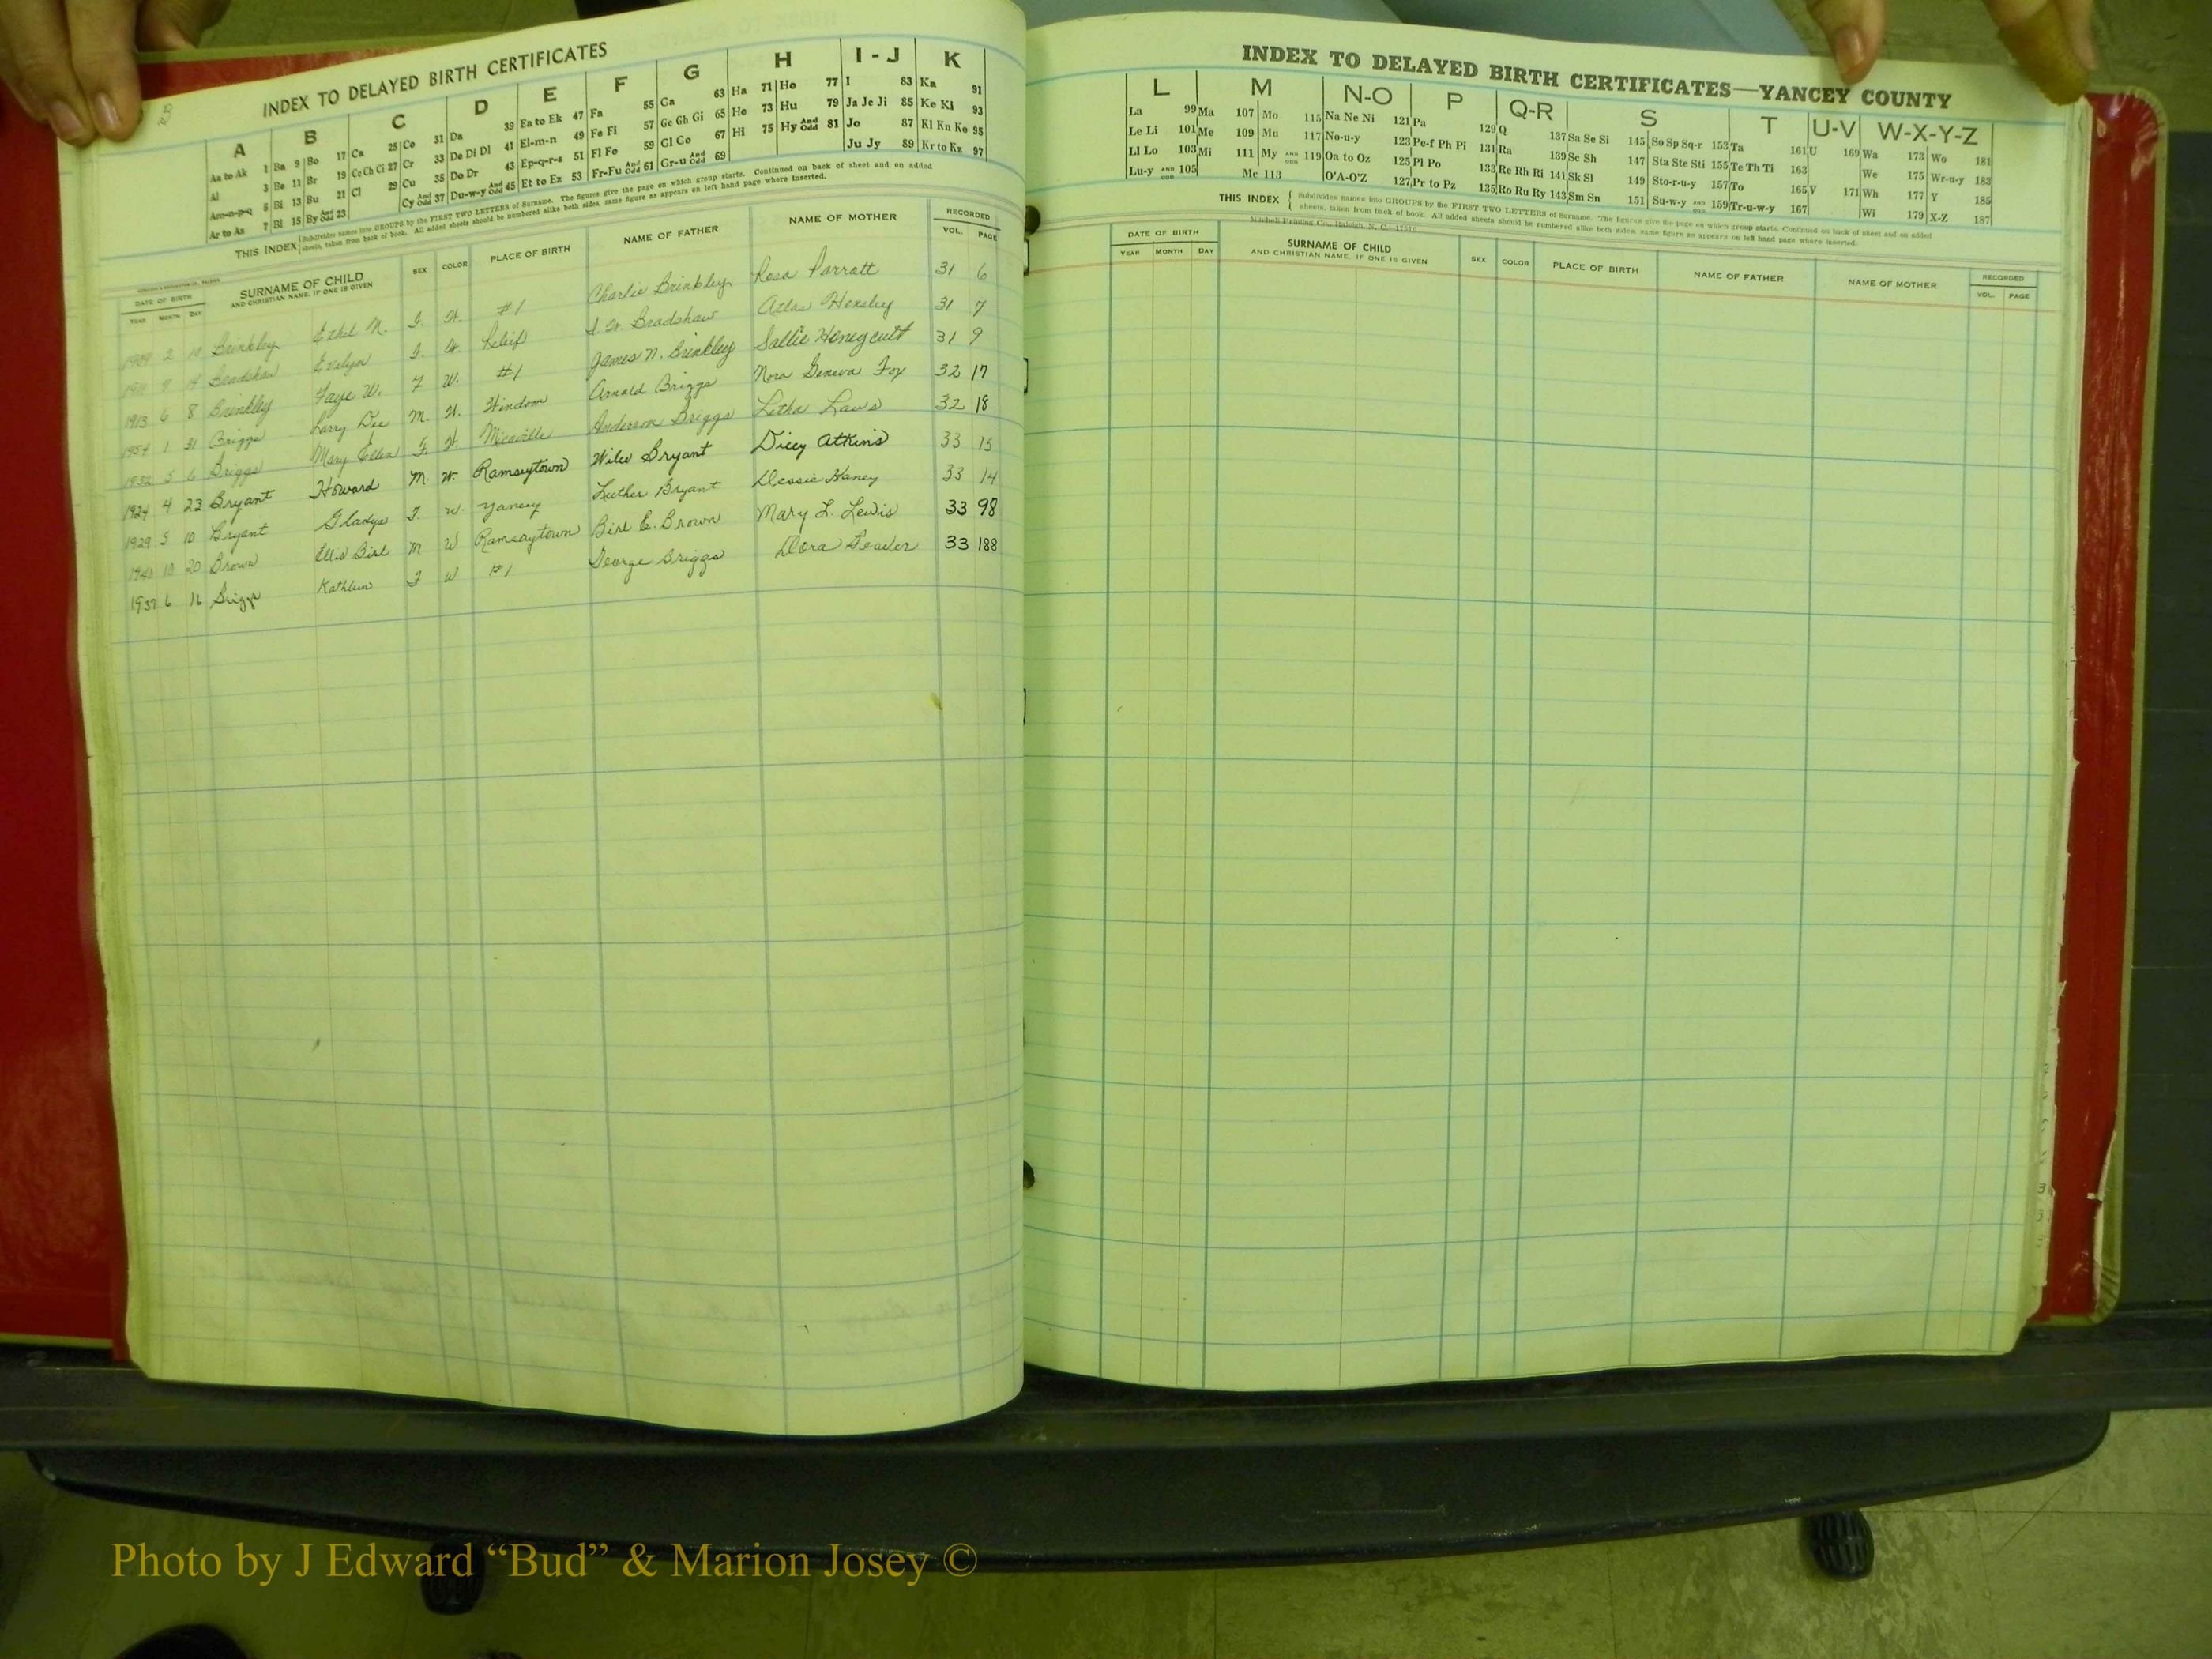 INDEX TO DELAYED BIRTH CERTIFICATES
A B C D E F G H I - J K
Aa to Ak 1 Ba 9 Bo 17 Ca 25 Co 31 Da 39 Ea to Ek 47 Fa 55 Ga 63 Ha 71 Ho 77 I 83 Ka 91
Al 3 Be 11 Br 19 Ce Ch Ci 27 Cr 33 De Di Dl 41 El-m-n 49 Fe Fi 57 Ge Gh Gi 65 He 73 Hu 79 Ja Je Ji 85 Ke Kl 93
Am-n-p-q 5 Bi 13 Bu 21 Cl 29 Cu 35 Do Dr 43 Ep-q-r-s 51 Fl Fo 59 Gl Go 67 Hi 75 Hy And Odd 81 Jo 87 Kl Kn Ko 95
Ar to As 7 Bl 15 By And Odd 23 Cy And Odd 37 Du-w-y And Odd 45 Et to Ez 53 Fr-Fu And Odd 61 Gr-u And Odd 69 Ju Jy 89 Kr to Kz 97
THIS INDEX { Subdivides names into GROUPS by the FIRST TWO LETTERS of Surname. The figures give the page on which group starts. Continued on back of sheet and on added
sheets, taken from back of book. All added sheets should be numbered alike both sides, same figure as appears on left hand page where inserted.
DATE OF BIRTH SURNAME OF CHILD SEX COLOR PLACE OF BIRTH NAME OF FATHER NAME OF MOTHER RECORDED
YEAR MONTH DAY AND CHRISTIAN NAME, IF ONE IS GIVEN VOL. PAGE
1909 2 10 Brinkley Ethel N. F. W. #1 Charlie Brinkley Rosa Parratt 31 6
1911 9 14 Bradshaw Evelyn F. W. Relief Bradshaw Atlas Hensley 31 7
1913 6 8 Brinkley Faye W. F W. #1 James N. Brinkley Sallie Honeycutt 31 9
1954 1 31 Briggs Larry Dee M. W. Windom Arnold Briggs Nora Geneva Fox 32 17
1932 5 6 Briggs Mary Ellen F. W. Micaville Anderson Briggs Letha Laws 32 18
1924 4 23 Bryant Howard M. W. Ramseytown Wiley Bryant Dicey Atkins 33 13
1929 5 10 Bryant Gladys F. W. Yancey Luther Bryant Dessie Haney 33 14
20 Brown Ellis Birl M W Ramseytown Birl E. Brown Mary L. Lewis 33 98
1937 6 16 Briggs Kathleen F W #1 George Briggs Dora Deaver 33 188
INDEX TO DELAYED BIRTH CERTIFICATES—YANCEY COUNTY
L M N-O P Q-R S T U-V W-X-Y-Z
La 99 Ma 107 Mo 115 Na Ne Ni 121 Pa 129 Q 137 Sa Se Si 145 So Sp Sq-r 153 Ta 161 U 169 Wa 173 Wo 181
Le Li 101 Me 109 Mu 117 No-u-y 123 Pe-f Ph Pi 131 Ra 139 Sc Sh 147 Sta Ste Sti 155 Te Th Ti 163 We 175 Wr-u-y 183
Ll Lo 103 Mi 111 My AND ODD 119 Oa to Oz 125 Pl Po 133 Re Rh Ri 141 Sk Sl 149 Sto-r-u-y 157 To 165 V 171 Wh 177 Y 185
Lu-y AND ODD 105 Mc 113 O'A-O'Z 127 Pr to Pz 135 Ro Ru Ry 143 Sm Sn 151 Su-w-y AND ODD 159 Tr-u-w-y 167 Wi 179 X-Z 187
THIS INDEX { Subdivides names into GROUPS by the FIRST TWO LETTERS of Surname. The figures give the page on which group starts. Continued on back of sheet and on added
sheets, taken from back of book. All added sheets should be numbered alike both sides, same figure as appears on left hand page where inserted.
Mitchell Printing Co., Raleigh, N. C.
DATE OF BIRTH SURNAME OF CHILD SEX COLOR PLACE OF BIRTH NAME OF FATHER NAME OF MOTHER RECORDED
YEAR MONTH DAY AND CHRISTIAN NAME, IF ONE IS GIVEN VOL. PAGE
Photo by J Edward “Bud” & Marion Josey ©